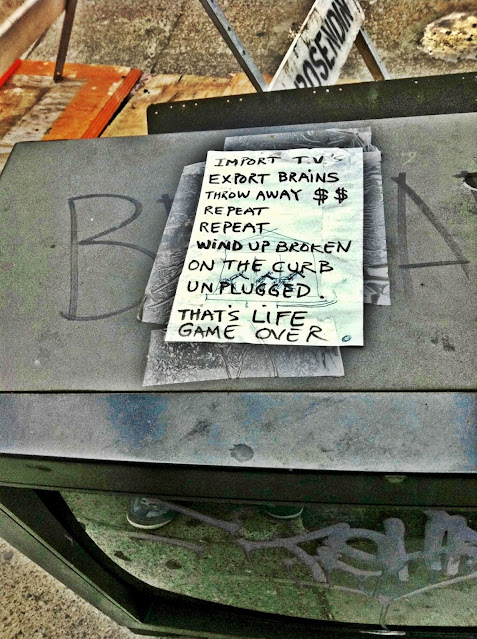 ROSENDIN
IMPORT T.V.'s
EXPORT BRAINS
THROW AWAY $$
REPEAT
REPEAT
WIND UP BROKEN
ON THE CURB
UNPLUGGED.
THAT'S LIFE
GAME OVER.